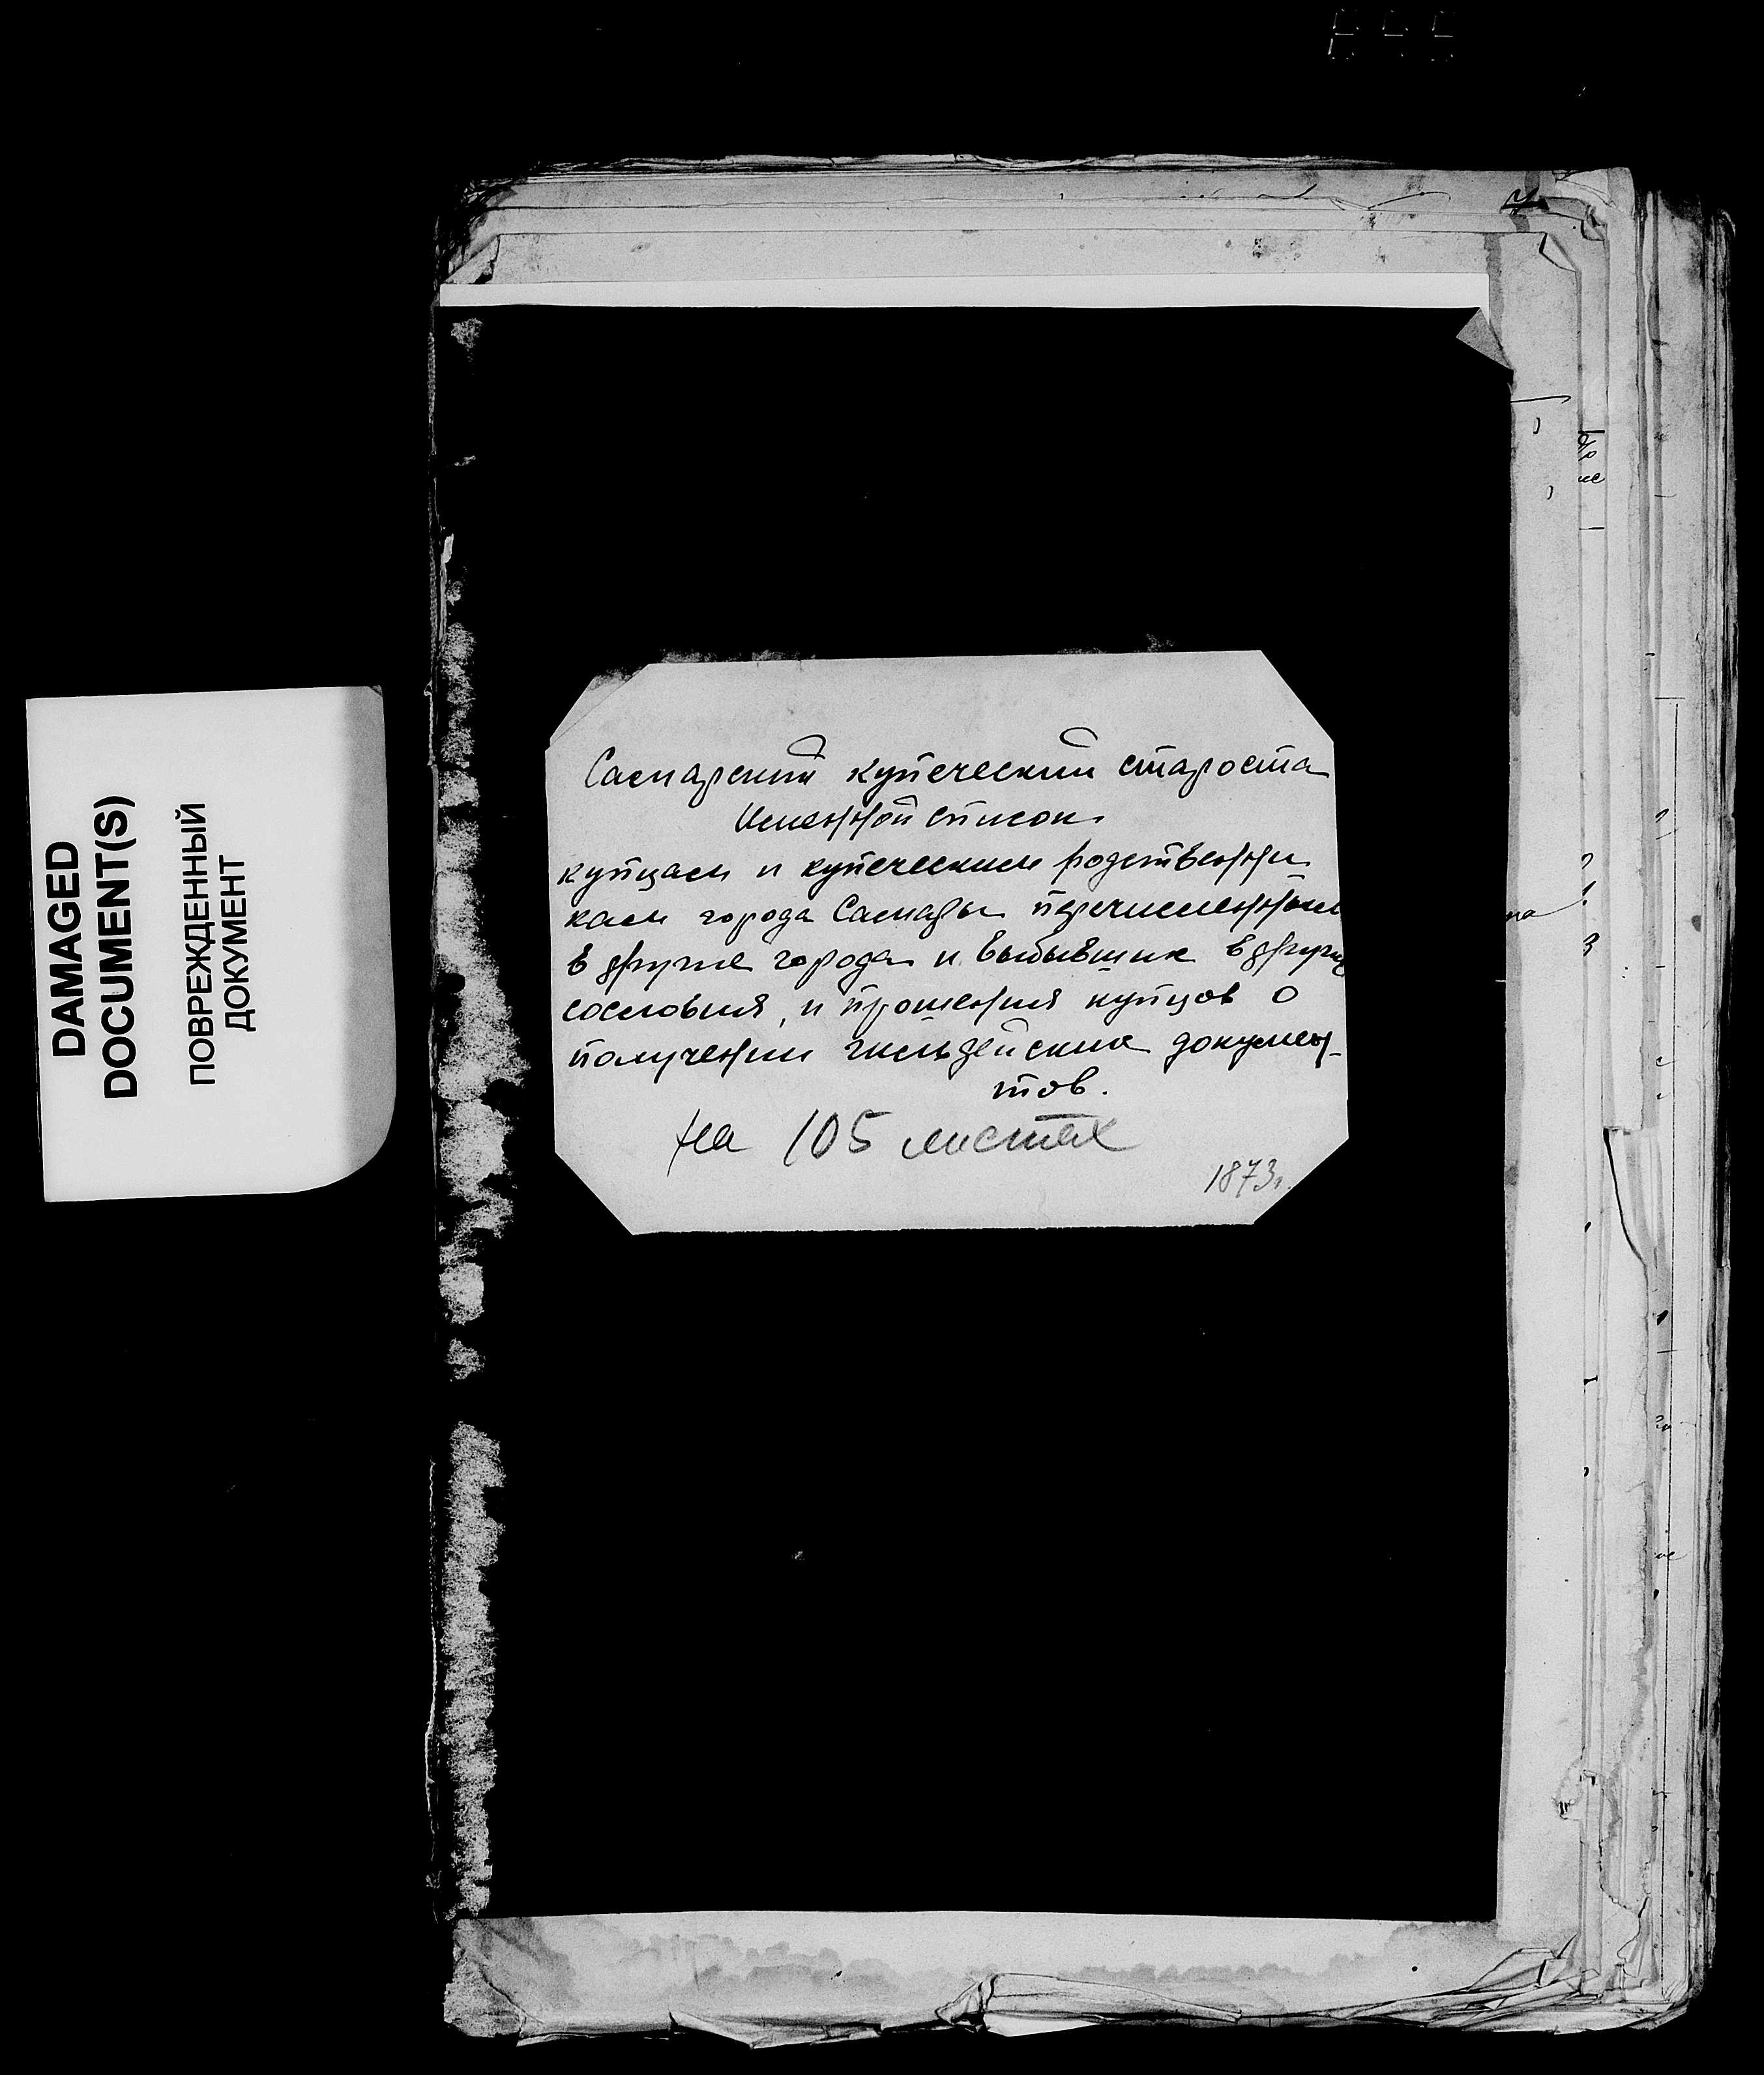 DAMAGED
DOCUMENT(S)
ПОВРЕЖДЕННЫЙ
ДОКУМЕНТ
Самарский купеческий староста
Именной список
купцам и купеческим родственни
кам города Самары перечисленным
в другие города и выбывших в другие
сословия, и прошения купцов о
получении гильдейских докумен-
тов.
на 105 листах
1873г.